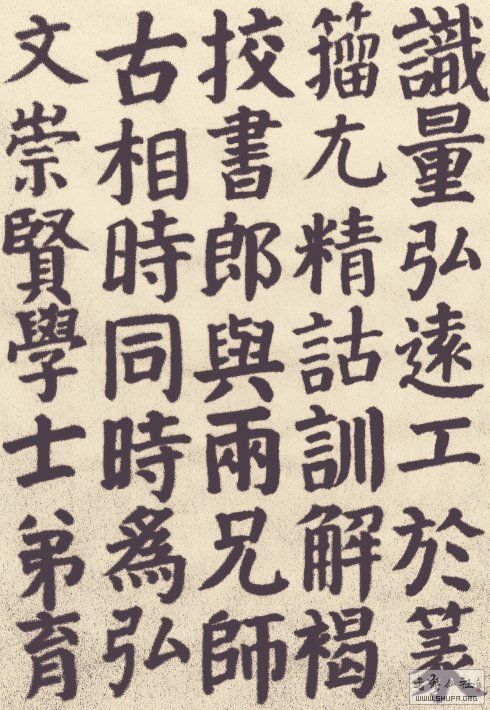 識量弘遠工於篆
籀尤精詁訓解褐
挍書郎與兩兄師
古相時同時爲弘
文崇賢學士弟育
WWW.SHUFA.ORG